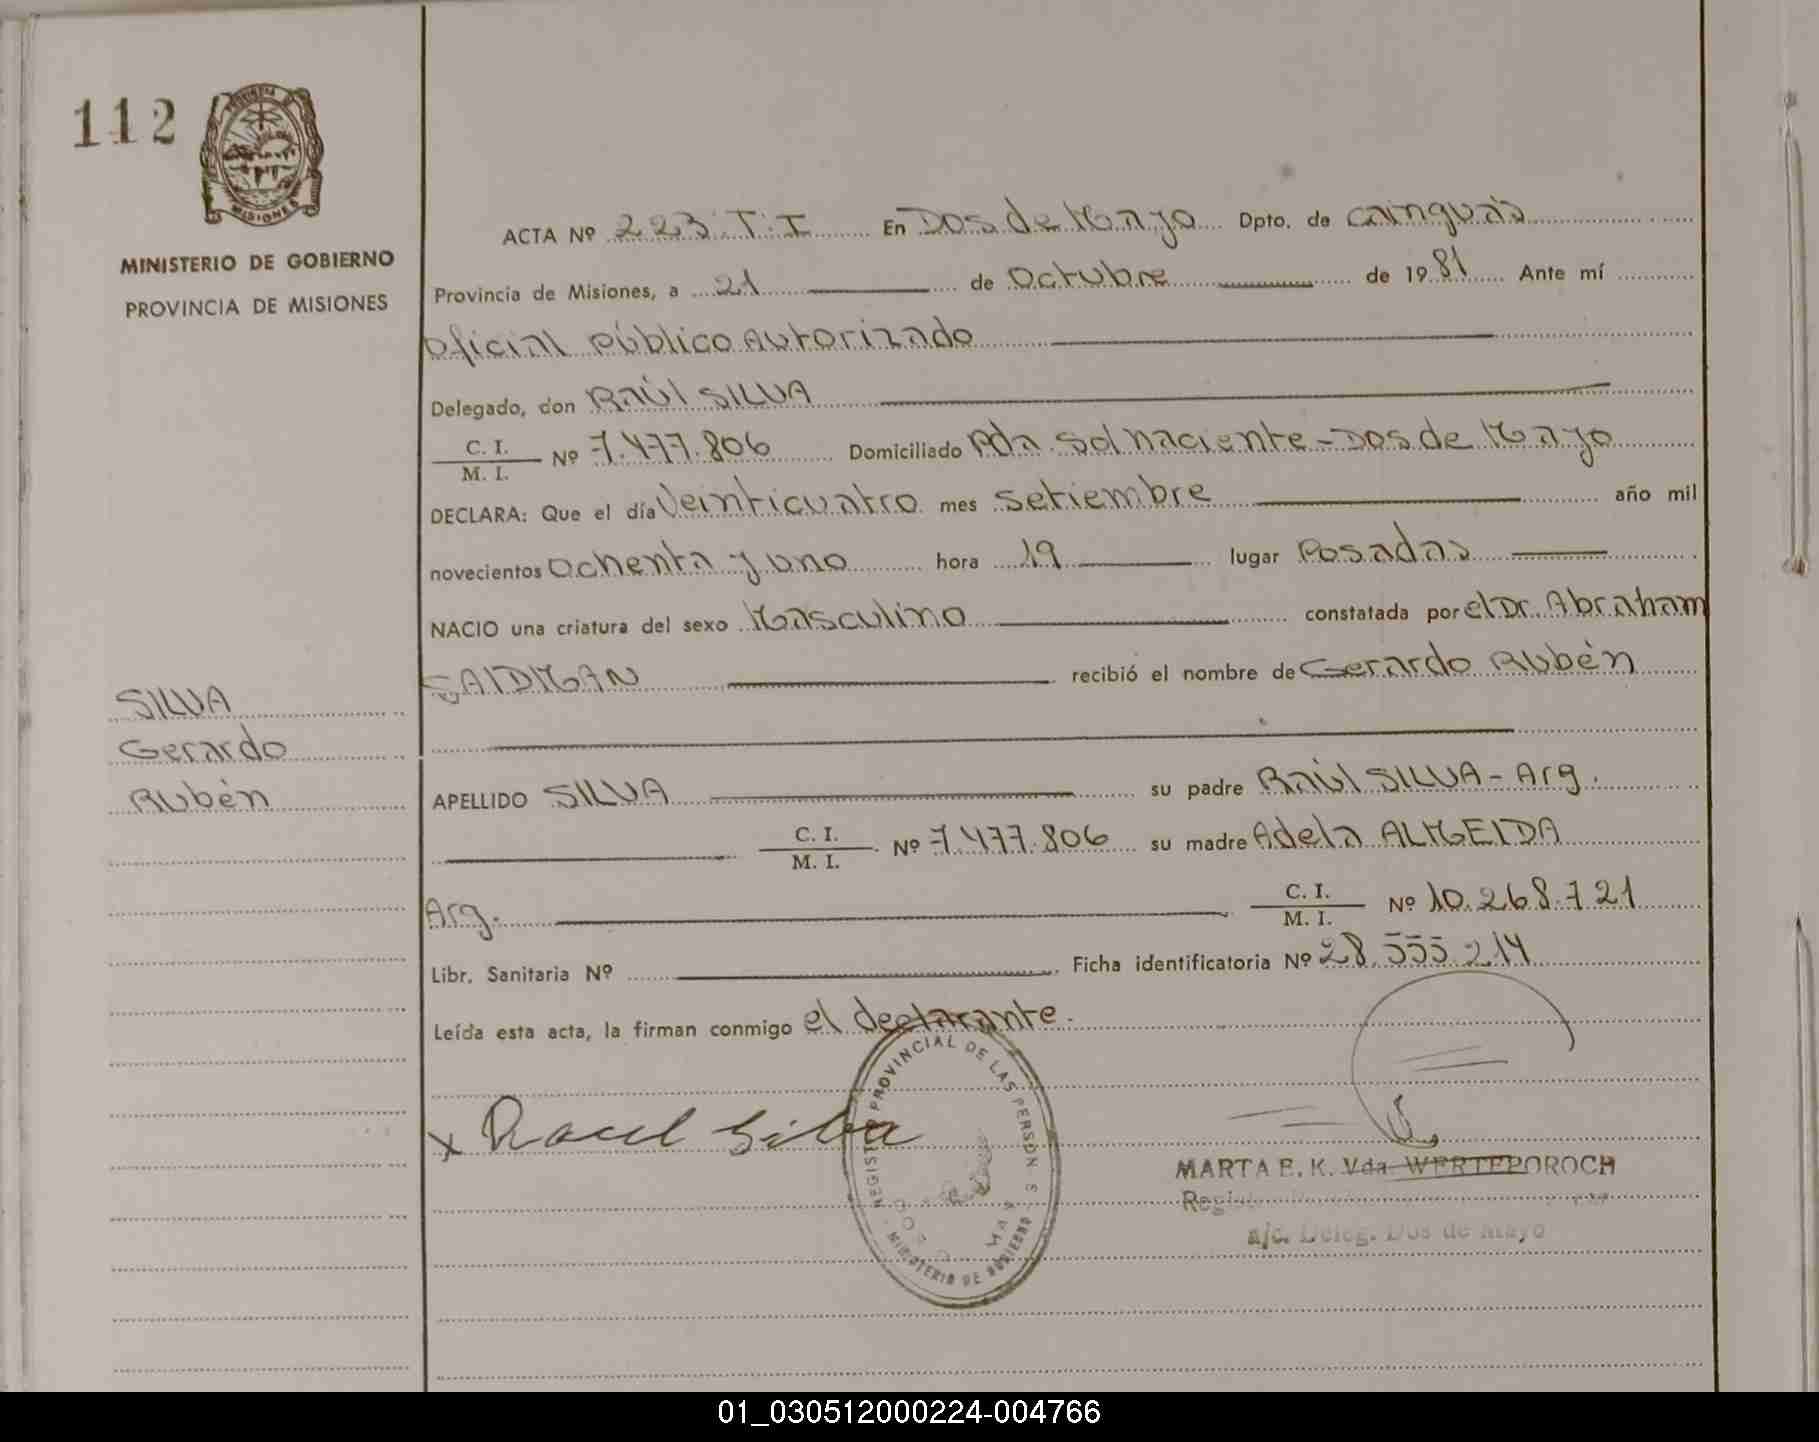 112
PROVINCIA DE
MISIONES
MINISTERIO DE GOBIERNO
PROVINCIA DE MISIONES
SILVA
Gerardo
Rubén
ACTA Nº 223. T: I En Dos de Mayo Dpto. de Cainguás
Provincia de Misiones, a 21 de Octubre de 1981 Ante mí
Oficial Público Autorizado
Delegado, don Raúl SILVA
C. I. / M. I. Nº 7.477.806 Domiciliado Pda Sol Naciente - Dos de Mayo
DECLARA: Que el día Veinticuatro mes Setiembre año mil
novecientos Ochenta y uno hora 19 lugar Posadas
NACIO una criatura del sexo Masculino constatada por el Dr. Abraham
SAIDMAN recibió el nombre de Gerardo Rubén
APELLIDO SILVA su padre Raúl SILVA - Arg.
C. I. / M. I. Nº 7.477.806 su madre Adela ALMEIDA
Arg. C. I. / M. I. Nº 10.268.721
Libr. Sanitaria Nº Ficha identificatoria Nº 28.555.214
Leída esta acta, la firman conmigo el declarante.
REGISTRO PROVINCIAL DE LAS PERSONAS
MINISTERIO DE GOBIERNO
x Raul Silva
MARTA E. K. Vda. WERTEPOROCH
a/c. Deleg. Dos de Mayo
01_030512000224-004766